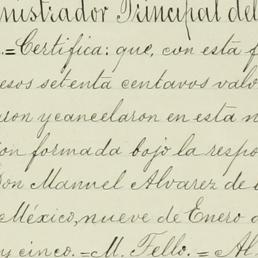 nistrador Principal del
.=Certifica: que, con esta f
esos setenta centavos valo
aron y cancelaron en esta n
ion formada bajo la respo
Don Manuel Alvarez de l
México, nueve de Enero d
y cinco.=M. Tello.=Al.